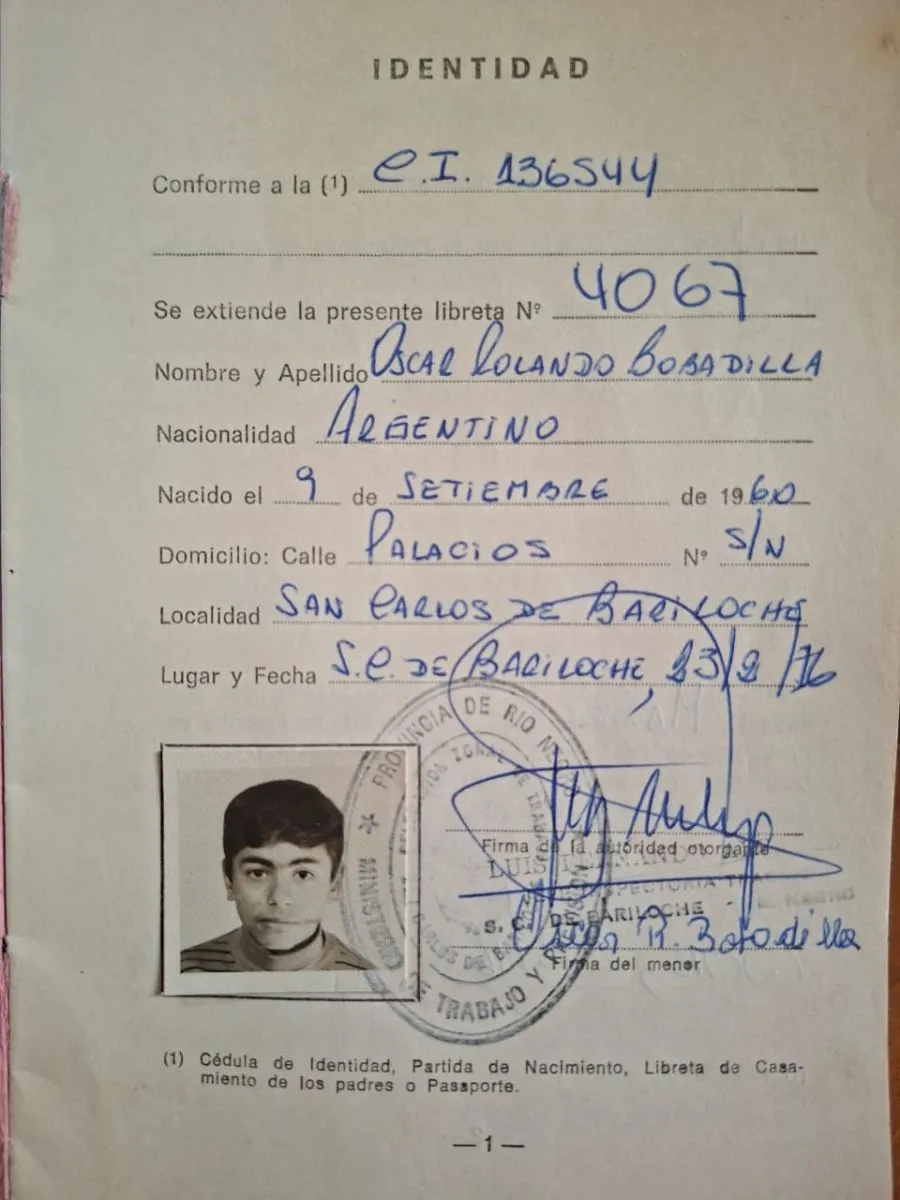 IDENTIDAD
Conforme a la (1) C.I. 136544
Se extiende la presente libreta Nº 4067
Nombre y Apellido OSCAR ROLANDO BOBADILLA
Nacionalidad ARGENTINO
Nacido el 9 de SETIEMBRE de 1960
Domicilio: Calle PALACIOS Nº S/N
Localidad SAN CARLOS DE BARILOCHE
Lugar y Fecha S.C. DE BARILOCHE, 23/2/76
PROVINCIA DE RIO NEGRO
MINISTERIO DE TRABAJO Y PREVISION
ZONAL DE TRABAJO
CARLOS DE
Firma de la autoridad otorgante
LUIS
S. C. DE BARILOCHE
Oscar R. Bobadilla
Firma del menor
(1) Cédula de Identidad, Partida de Nacimiento, Libreta de Casa-
miento de los padres o Pasaporte.
— 1 —